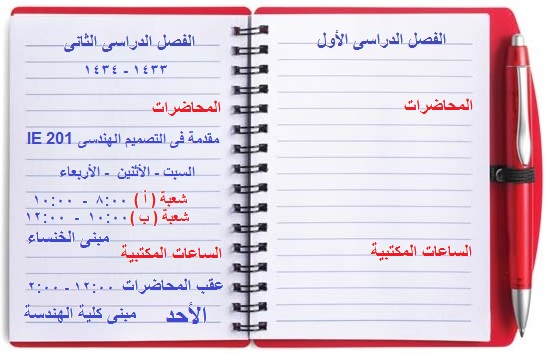 الفصل الدراسى الأول
المحاضرات
الساعات المكتبية
الفصل الدراسى الثانى
١٤٣٣ - ١٤٣٤
المحاضرات
مقدمة فى التصميم الهندسى IE 201
السبت - الأثنين - الأربعاء
شعبة ( أ ) ٨:٠٠ - ١٠:٠٠
شعبة ( ب ) ١٠:٠٠ - ١٢:٠٠
مبنى الخنساء
الساعات المكتبية
عقب المحاضرات ١٢:٠٠ - ٢:٠٠
الأحد مبنى كلية الهندسة